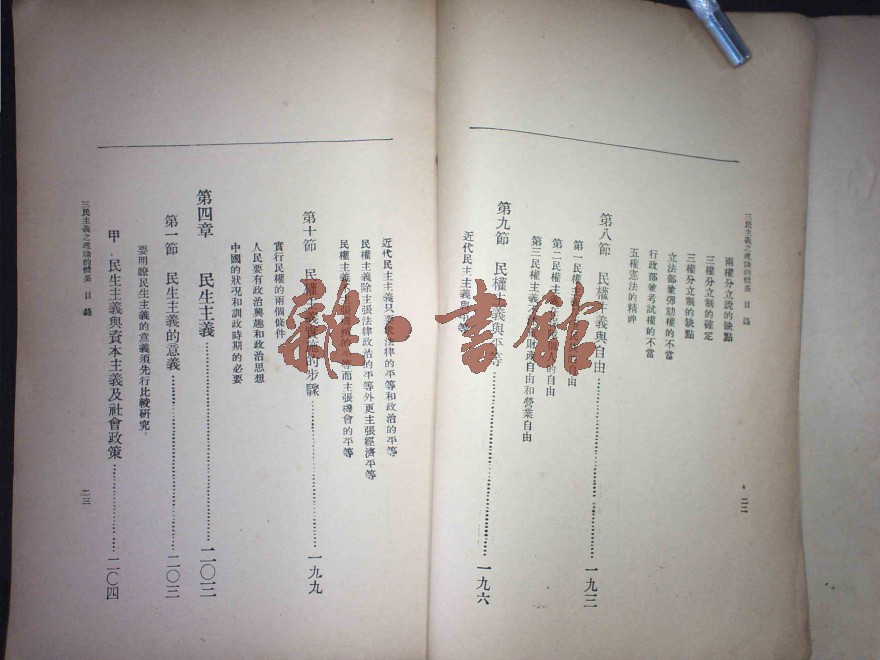 三民主義之理論的體系 目錄
兩權分立說的缺點
三權分立制的確定
三權分立制的缺點
立法部兼彈劾權的不當
行政部兼考試權的不當
五權憲法的精神
第八節 民權主義與自由 一九三
第一民權主義 自由
第二民權主義 人的自由
第三民權主義不 財產自由和營業自由
第九節 民權主義與平等 一九六
近代民主主義與平等
二二
近代民主主義只 法律的平等和政治的平等
民權主義除主張法律政治的平等外更主張經濟平等
民權主義不 的平等而主張機會的平等
第十節 民權主義實施的步驟 一九九
實行民權的兩個條件
人民要有政治興趣和政治思想
中國的狀況和訓政時期的必要
第四章 民生主義 二〇三
第一節 民生主義的意義 二〇三
要明瞭民生主義的意義須先行比較研究
甲 民生主義與資本主義及社會政策 二〇四
三民主義之理論的體系 目錄
二三
雜·書館